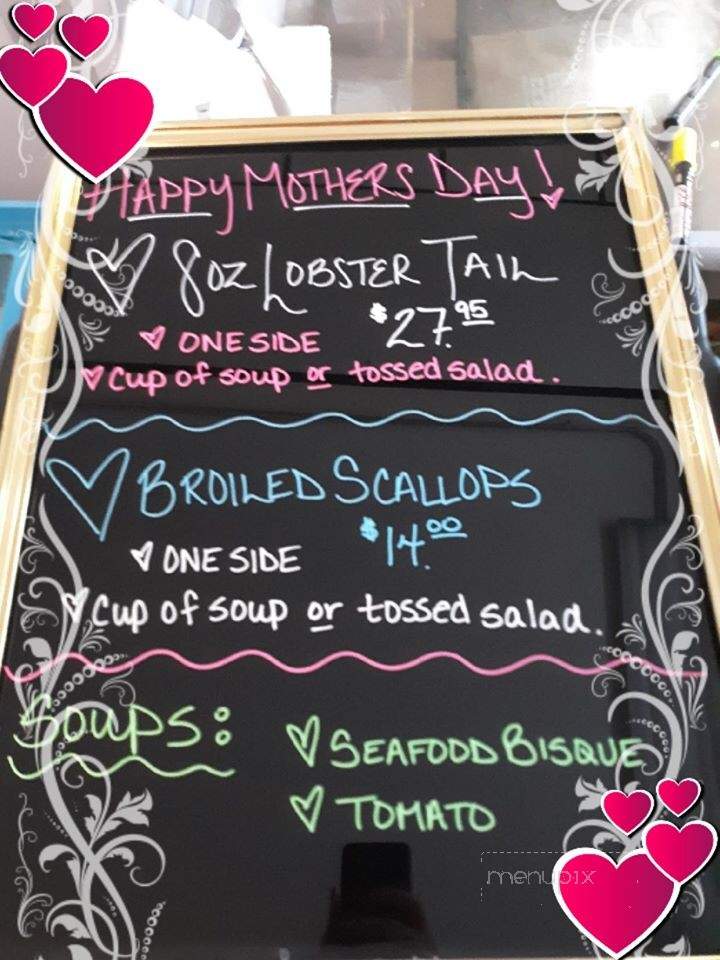 HAPPY MOTHERS DAY!
8OZ LOBSTER TAIL
$27.95
ONE SIDE
cup of soup or tossed salad.
BROILED SCALLOPS
$14.00
ONE SIDE
cup of soup or tossed salad.
SOUPS:
SEAFOOD BISQUE
TOMATO
menupix